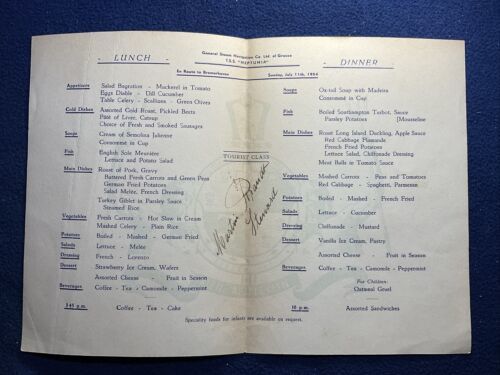 General Steam Navigation Co. Ltd. of Greece
T.S.S. "NEPTUNIA"
En Route to Bremerhaven
Sunday, July 11th, 1954
TOURIST CLASS
LUNCH
Appetizers Salad Bagration - Mackerel in Tomato
Eggs Diable - Dill Cucumber
Table Celery - Scallions - Green Olives
Cold Dishes Assorted Cold Roast, Pickled Beets
Pâté of Liver, Catsup
Choice of Fresh and Smoked Sausages
Soups Cream of Semolina Julienne
Consommé in Cup
Fish English Sole Meunière
Lettuce and Potato Salad
Main Dishes Roast of Pork, Gravy
Buttered Fresh Carrots and Green Peas
German Fried Potatoes
Salad Melée, French Dressing
Turkey Giblet in Parsley Sauce
Steamed Rice
Vegetables Fresh Carrots - Hot Slow in Cream
Mashed Celery - Plain Rice
Potatoes Boiled - Mashed - German Fried
Salads Lettuce - Melée
Dressing French - Lorenzo
Dessert Strawberry Ice Cream, Wafers
Assorted Cheese - Fruit in Season
Beverages Coffee - Tea - Camomile - Peppermint
3.45 p.m. Coffee - Tea - Cake
DINNER
Soups Ox-tail Soup with Madeira
Consommé in Cup
Fish Boiled Southampton Turbot, Sauce
Parsley Potatoes [Mousseline
Main Dishes Roast Long Island Duckling, Apple Sauce
Red Cabbage Flamande
French Fried Potatoes
Lettuce Salad, Chiffonade Dressing
Meat Balls in Tomato Sauce
Vegetables Mashed Carrots - Peas and Tomatoes
Red Cabbage - Spaghetti, Parmesan
Potatoes Boiled - Mashed - French Fried
Salads Lettuce - Cucumber
Dressing Chiffonade - Mustard
Dessert Vanilla Ice Cream, Pastry
Assorted Cheese - Fruit in Season
Beverages Coffee - Tea - Camomile - Peppermint
For Children:
Oatmeal Gruel
10 p.m. Assorted Sandwiches
Speciality foods for infants are available on request.
Martin
Steward